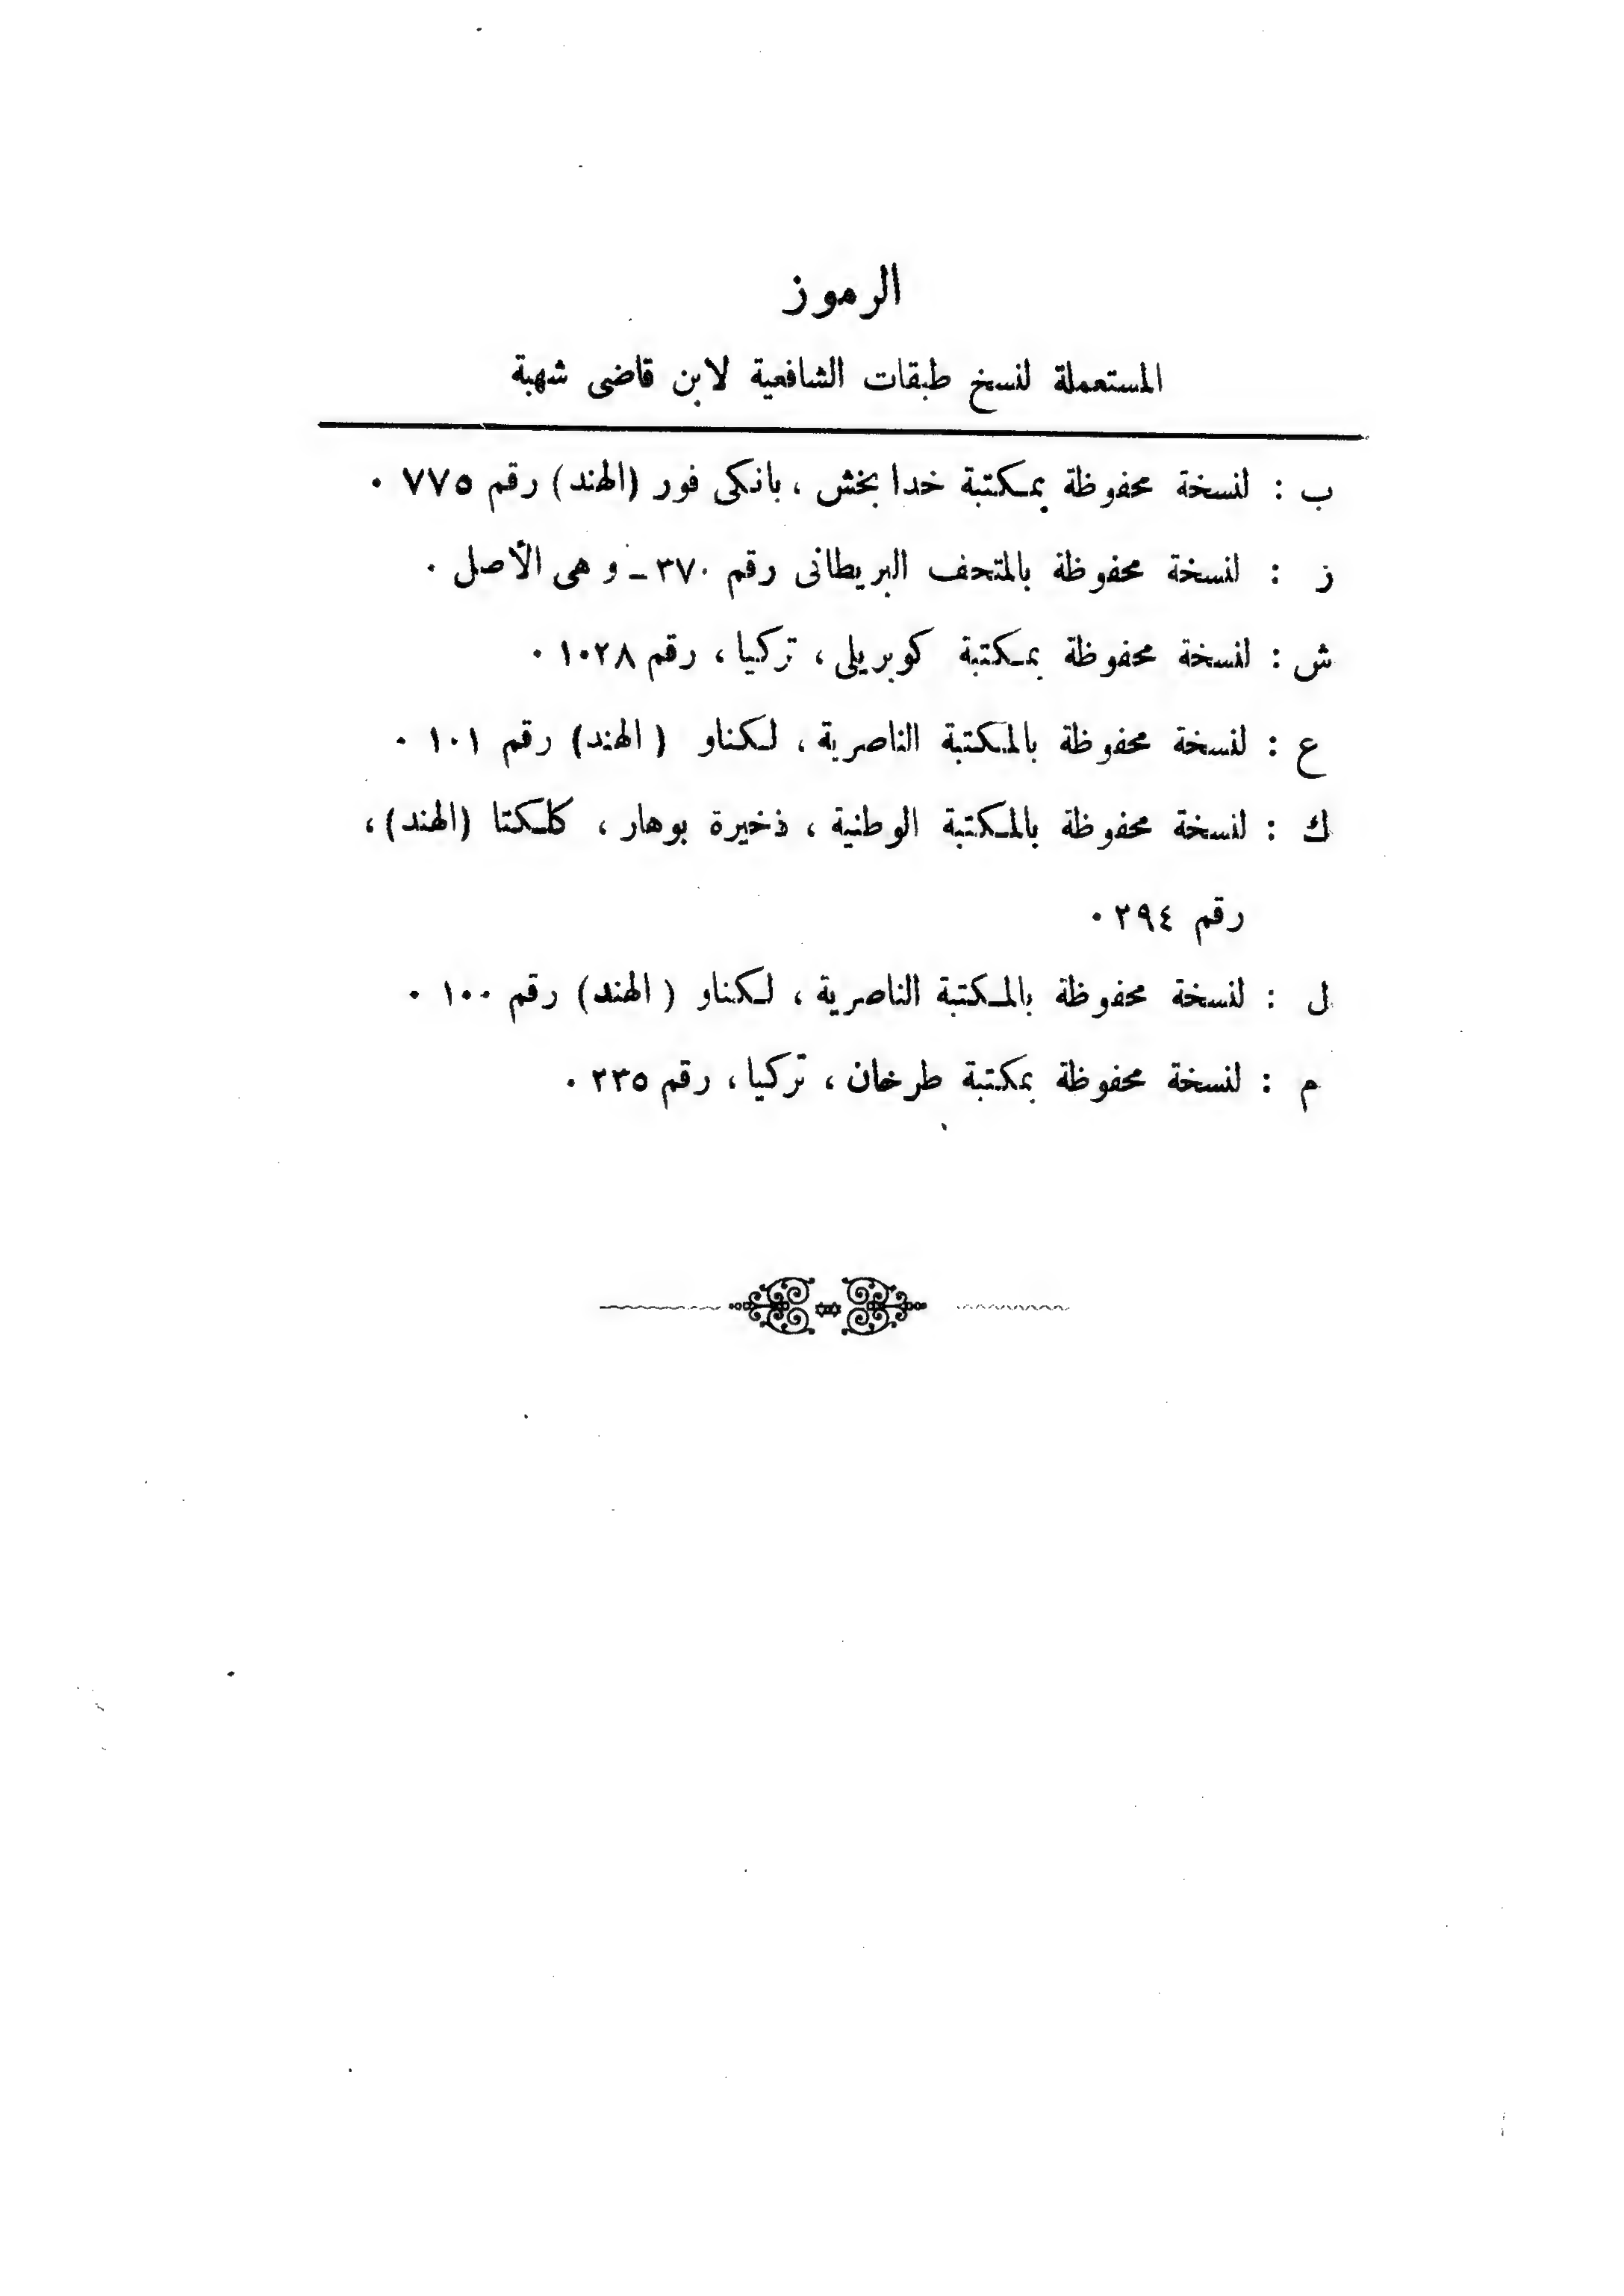 الرموز
المستعملة لنسخ طبقات الشافعية لابن قاضى شهبة
ب : لنسخة محفوظة بمكتبة خدا بخش ، بانكى فور (الهند) رقم ٧٧٥ ٠
ز : لنسخة محفوظة بالمتحف البريطانى رقم ٣٧٠ ـ و هى الأصل ٠
ش : لنسخة محفوظة بمكتبة كوبريلى ، تركيا ، رقم ١٠٢٨ ٠
ع : لنسخة محفوظة بالمكتبة الناصرية ، لكناو ( الهند) رقم ١٠١ ٠
ك : لنسخة محفوظة بالمكتبة الوطنية ، ذخيرة بوهار ، كلكتا (الهند) ،
رقم ٢٩٤ ٠
ل : لنسخة محفوظة بالمكتبة الناصرية ، لكناو ( الهند) رقم ١٠٠ ٠
م : لنسخة محفوظة بمكتبة طرخان ، تركيا ، رقم ٢٣٥ ٠